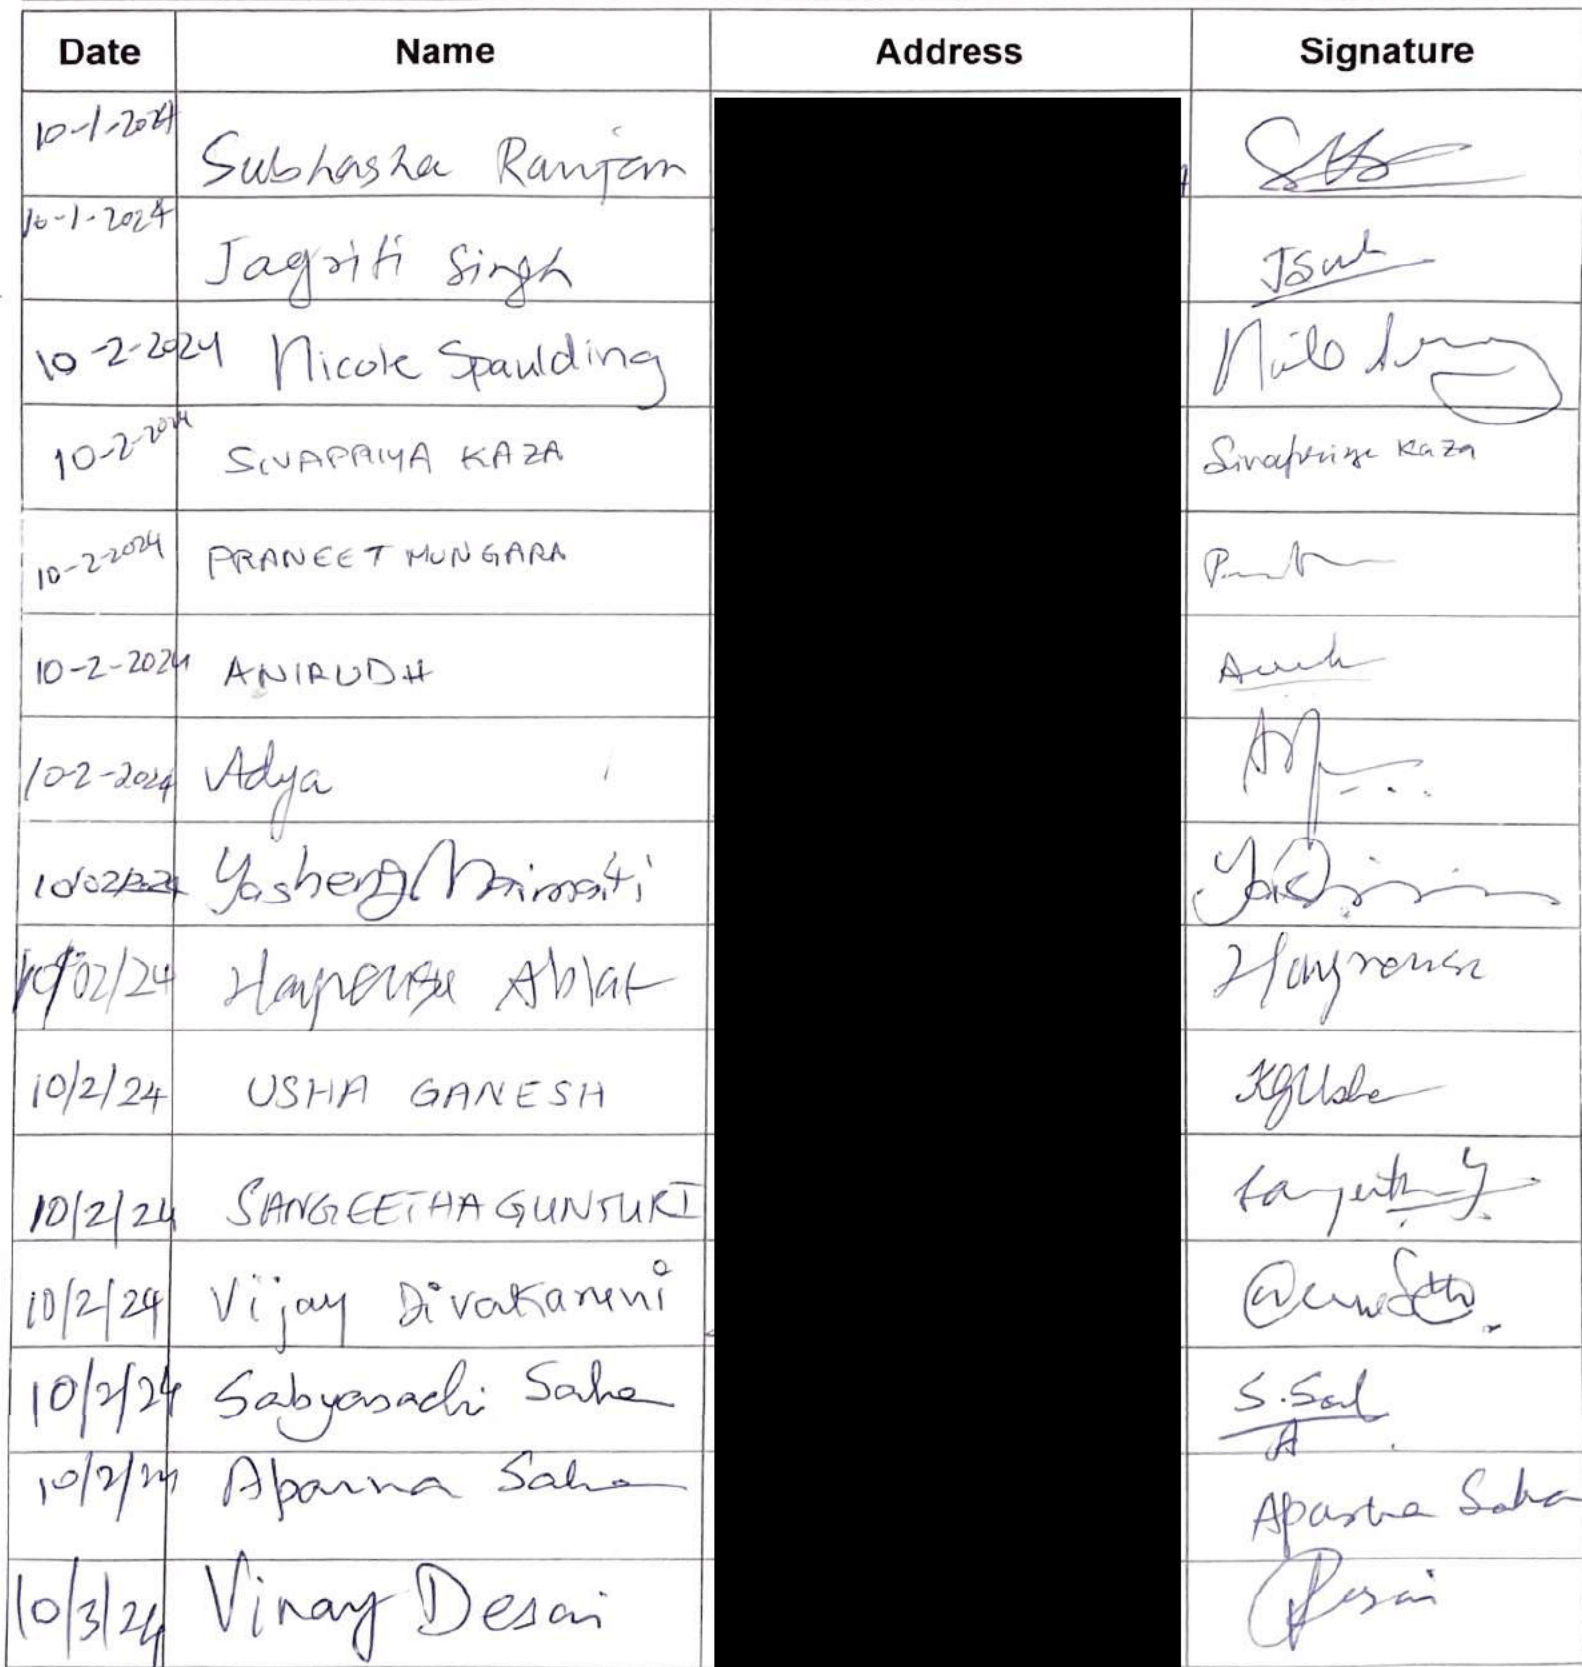 Date Name Address Signature
10-1-2024 Subhasha Ranjan
10-1-2024 Jagriti Singh
10-2-2024 Nicole Spaulding
10-2-2024 SIVAPRIYA KAZA Sivapriya Kaza
10-2-2024 PRANEET MUNGARA
10-2-2024 ANIRUDH
10-2-2024 Adya
10/02/2024 Yasheng Maimaiti
10/02/24 Ablat
10/2/24 USHA GANESH KGUsha
10/2/24 SANGEETHA GUNTURI
10/2/24 Vijay Divakaruni
10/2/24 Sabyasachi Saha
10/2/24 Aparna Saha Aparna Saha
10/3/24 Vinay Desai Desai